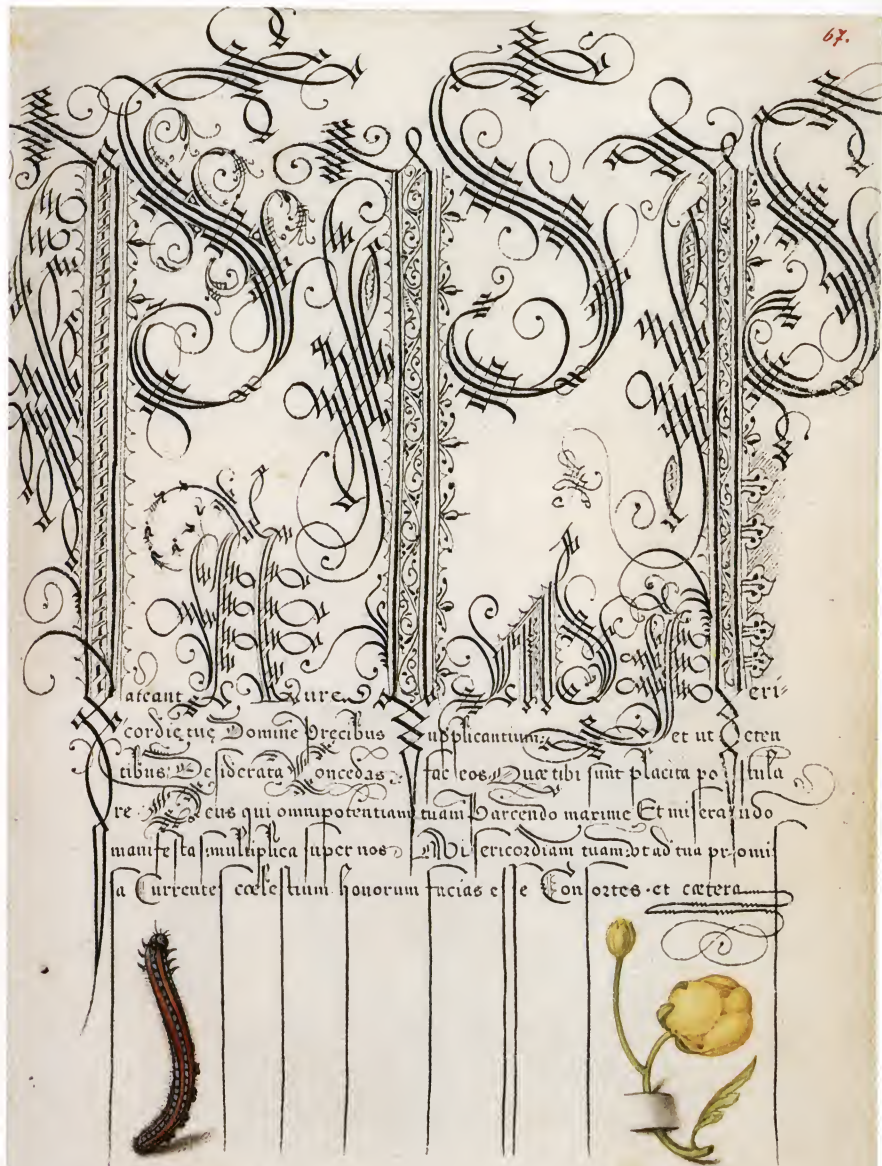 67.
Pateant Aures Miseri-
cordie tuę Domine Precibus Supplicantium: et ut Peten
tibus Desiderata Concedas: fac eos Quæ tibi sunt placita postula
re Deus qui omnipotentiam tuam Parcendo maxime Et miserando
manifestas: multiplica super nos Misericordiam tuam: ut ad tua promis
sa Currentes cœlestium honorum facias esse Consortes. et cætera